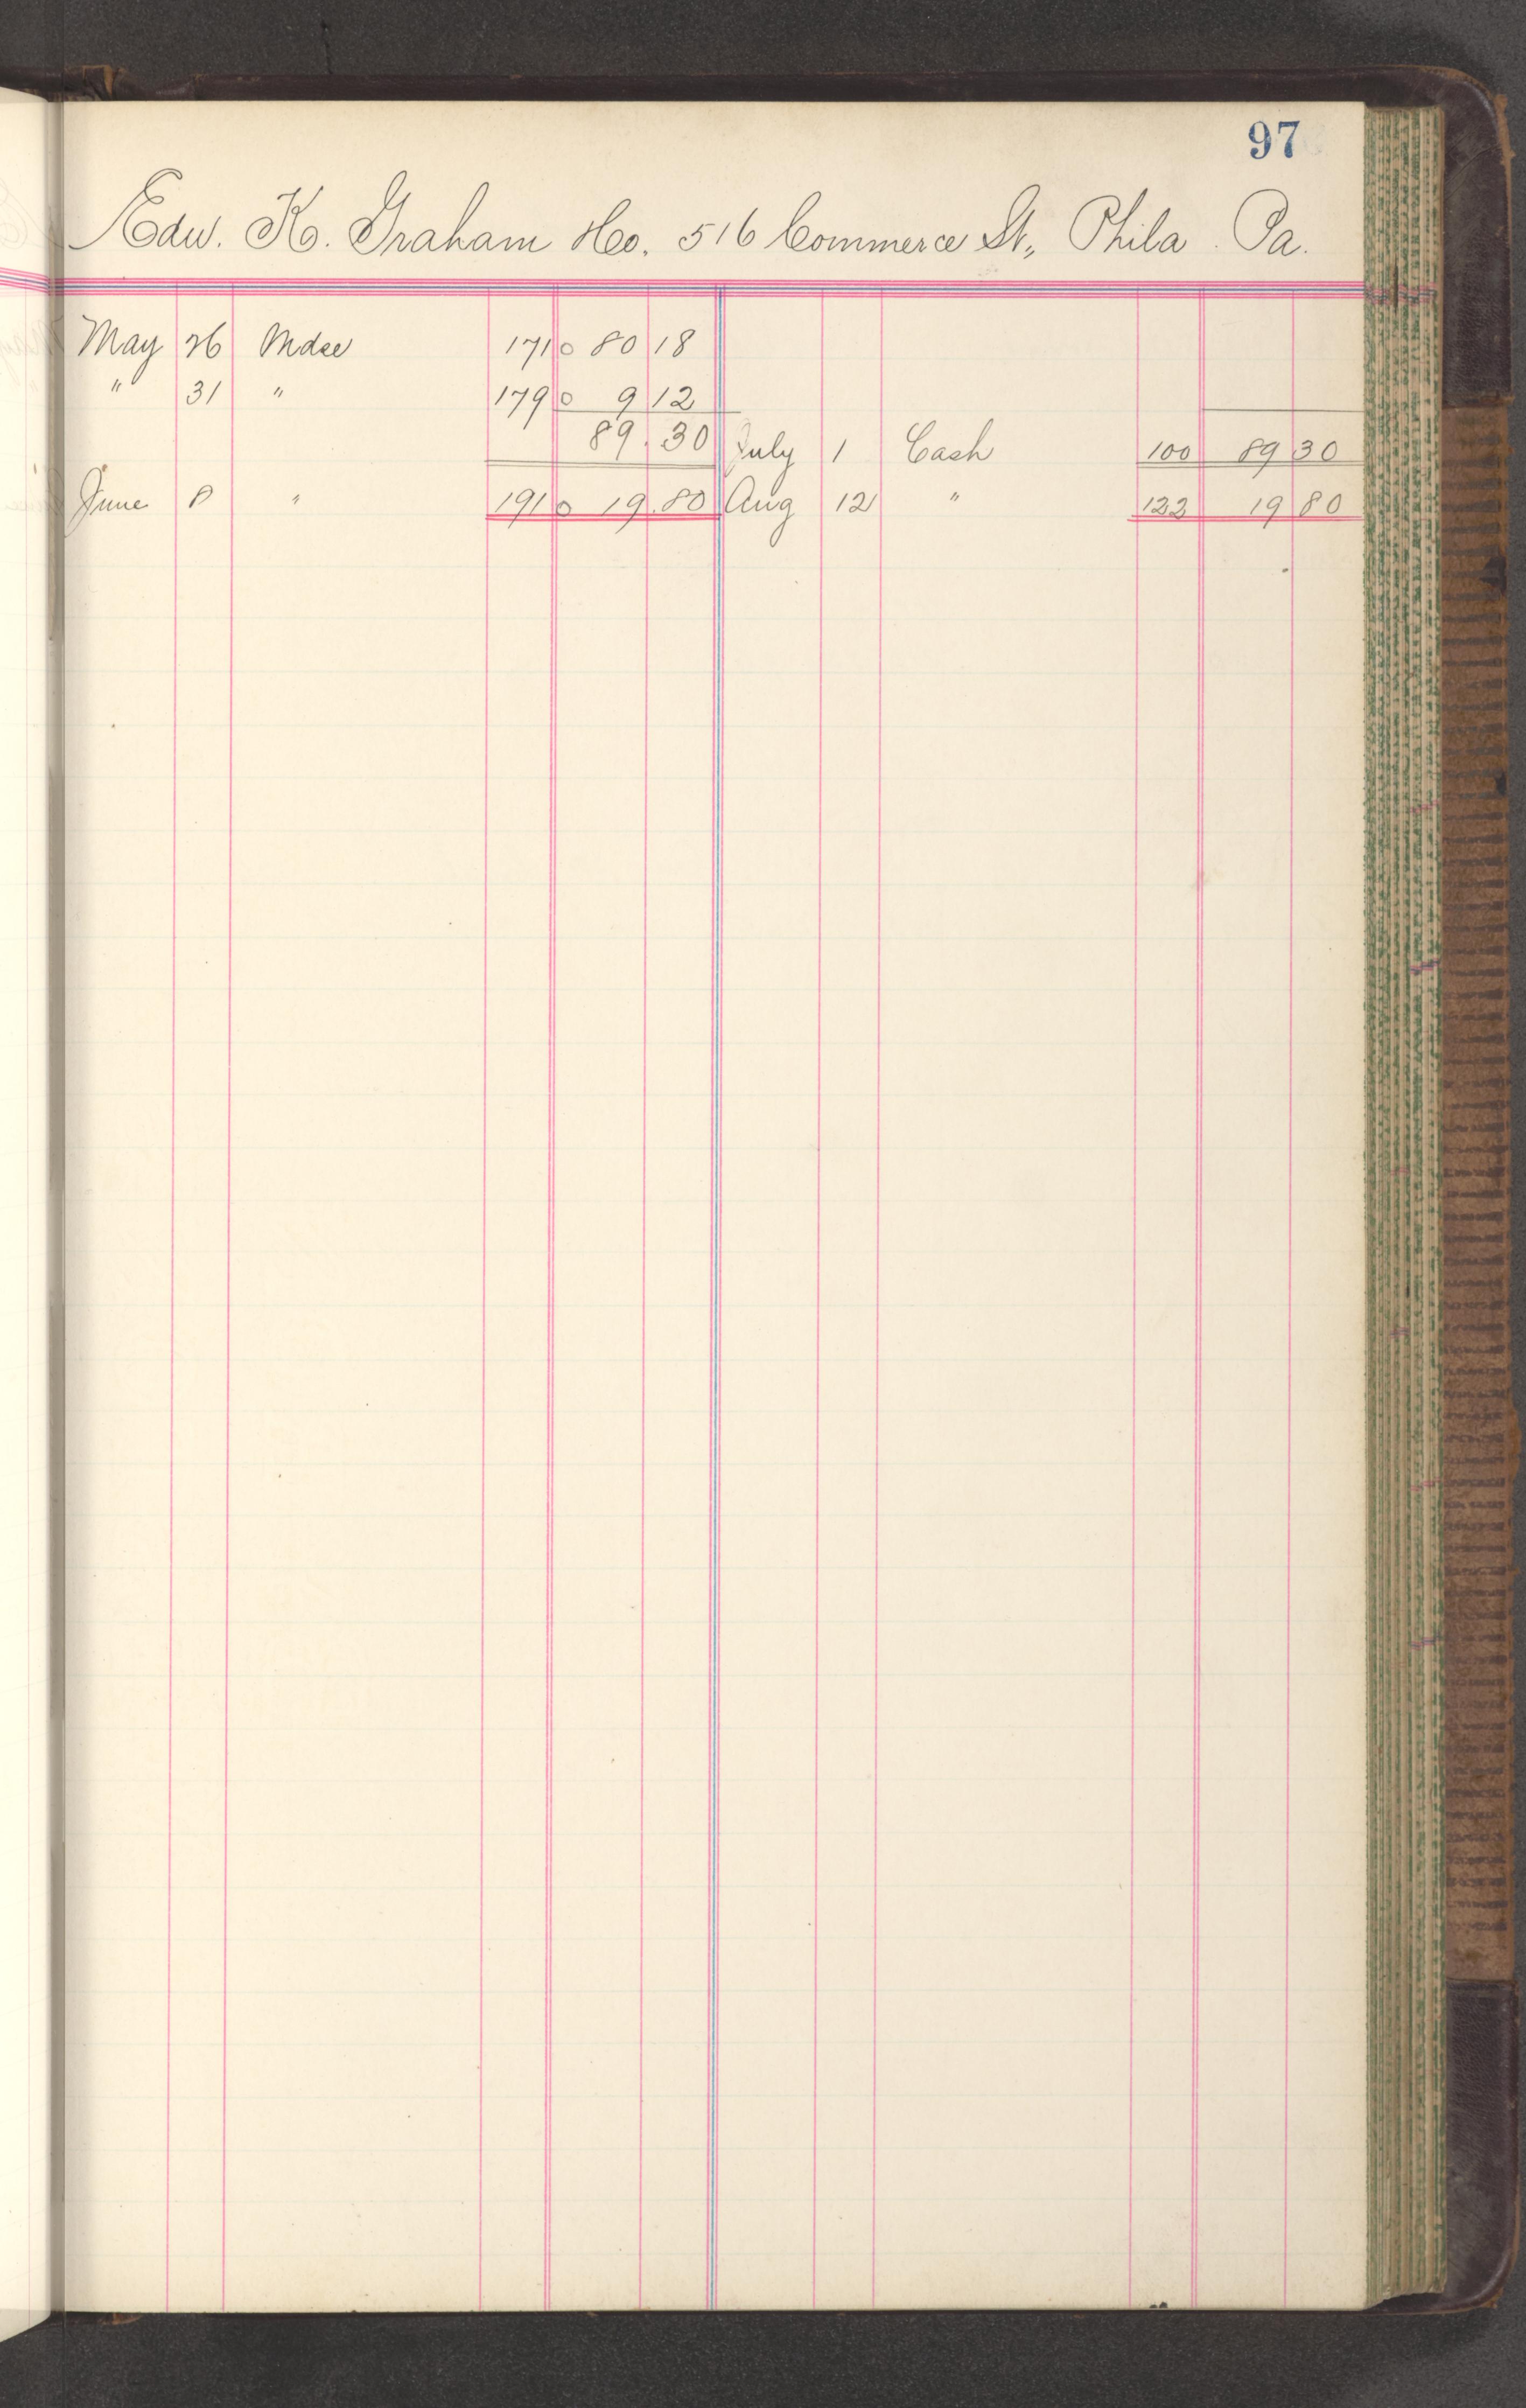 97
Edw. K. Graham Co. 516 Commerce St., Phila. Pa.
May 26 Mdse 171 0 80 18
" 31 " 179 0 9 12
89.30 July 1 Cash 100 89 30
June 8 " 191 0 19.80 Aug 12 " 122 19 80